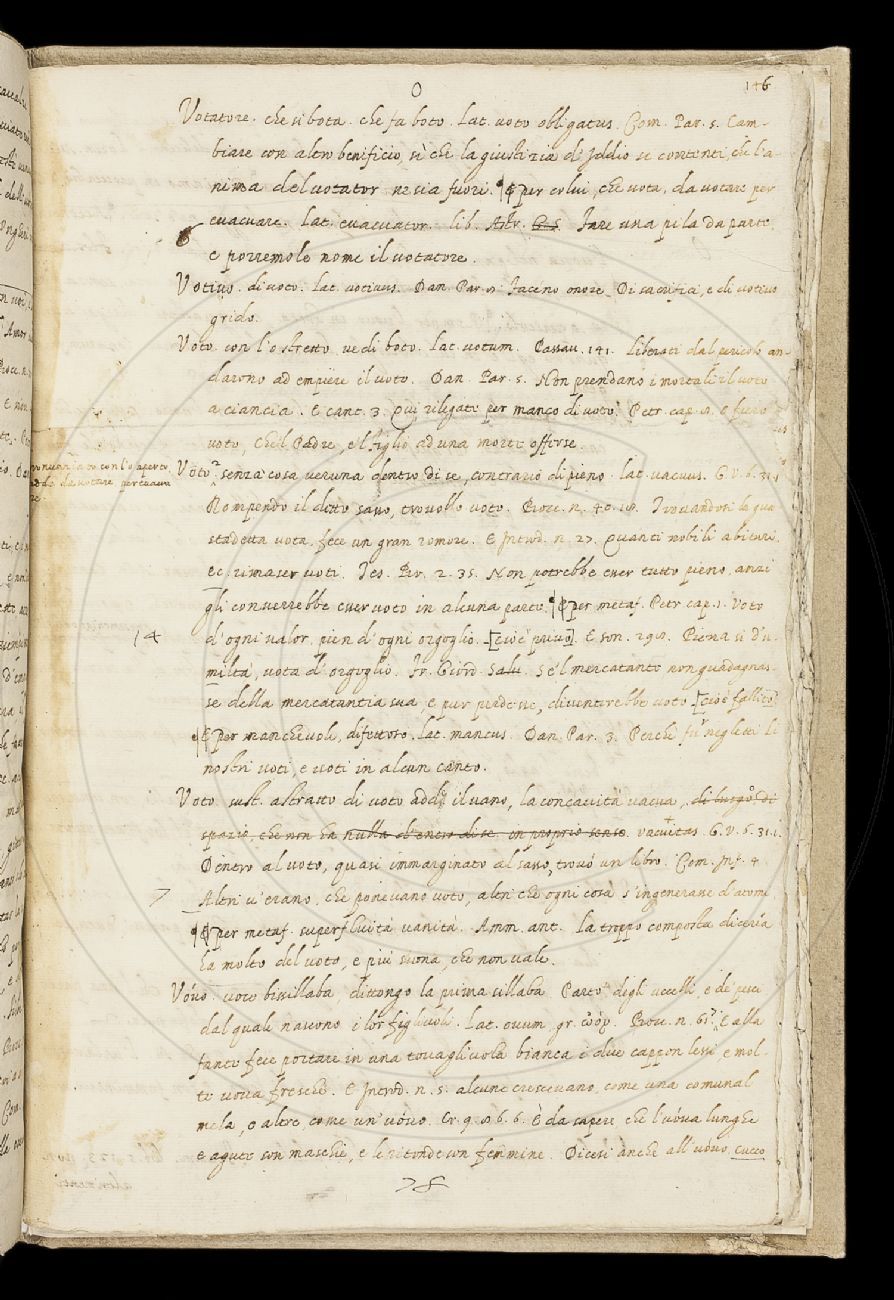 O
146
Votatore. che si bota. che fa boto. Lat. voto obligatus. Com. Par. 5. Cam-
biare con altro benificio, sì che la giustizia di Iddio si contenti, che l'a-
nima del votator ne sia fuori. ¶ per colui, che vota, da votare per
evacuare. Lat. evacuator. lib. Astr. Fare una pila da parte,
e porremole nome il votatore.
Votivo. di voto. Lat. votivus. Dan. Par. 8. Faceno onore, Di sacrifici, e di votivo
grido.
Voto con l'o stretto vedi boto. Lat. votum. Passav. 141. liberati dal pericolo an-
darono ad empiere il voto. Dan. Par. 5. Non prendano i mortali il voto
a ciancia. E cant. 3. Qui rilegate per manco di voto. Petr. cap. 8. E fiero
voto, che 'l Padre, e 'l figlio ad una morte offerse.
pronunziato con l'o aperto
da votare per evacua
re
Vòto, senza cosa veruna dentro di se, contrario di pieno. Lat. vacuus. G. V. 6. 31. 1
Rompendo il detto sasso, trovollo voto. Bocc. n. 40. 18. Trovandosi la gua
stadetta vota, fece un gran romore. E Introd. n. 27. Quanti nobili abituri
ec. rimaser voti. Tes. Br. 2. 35. Non potrebbe esser tutto pieno, anzi
gli converrebbe esser voto in alcuna parte. ¶ per metaf. Petr cap. 1. Voto
14
d'ogni valor, pien d'ogni orgoglio. [cioè privo]. E son. 290. Piena sì d'u-
miltà, vota d'orgoglio. Fr. Giord. Salv. Se 'l mercatante non guadagnas-
se della mercatantia sua, e pur perdesse, diventerebbe voto. [cioè fallito]
¶ E per manchevole, difettoso. Lat. mancus. Dan. Par. 3. Perchè fur negletti li
nostri voti, e voti in alcun canto.
Voto sust. astratto di voto add. il vano, la concavità vacua, di luogo, di
spazio, che non ha nulla dentro di se. in proprio senso. vacuitas. G. V. 6. 31. 1.
Dentro al voto, quasi immarginato al sasso, trovò un libro. Com. Inf. 4.
7
Altri v'erano, che ponevano voto, altri che ogni cosa s'ingenerasse d'atomi
¶ per metaf. superfluità vanità. Amm. ant. La troppo composta diceria
ha molto del voto, e più suona, che non vale.
Vóvo. voce bisillaba, dittongo la prima sillaba. Parto degli uccelli, e de' pesci
dal quale nascono i lor figliuoli. Lat. ovum, gr. ὠόν. Bocc. n. 61. E alla
fante fece portare in una tovagliuola bianca i due cappon lessi, e mol-
te vova fresche. E Introd. n. 5. alcune crescevano, come una comunal
mela, e altre, come un' vóvo. Cr. 9. 86. 6. È da sapere, che l'vóva lunghe
e agute son maschie, e le ritonde son femmine. Dicesi anche all'vóvo, cucco
78